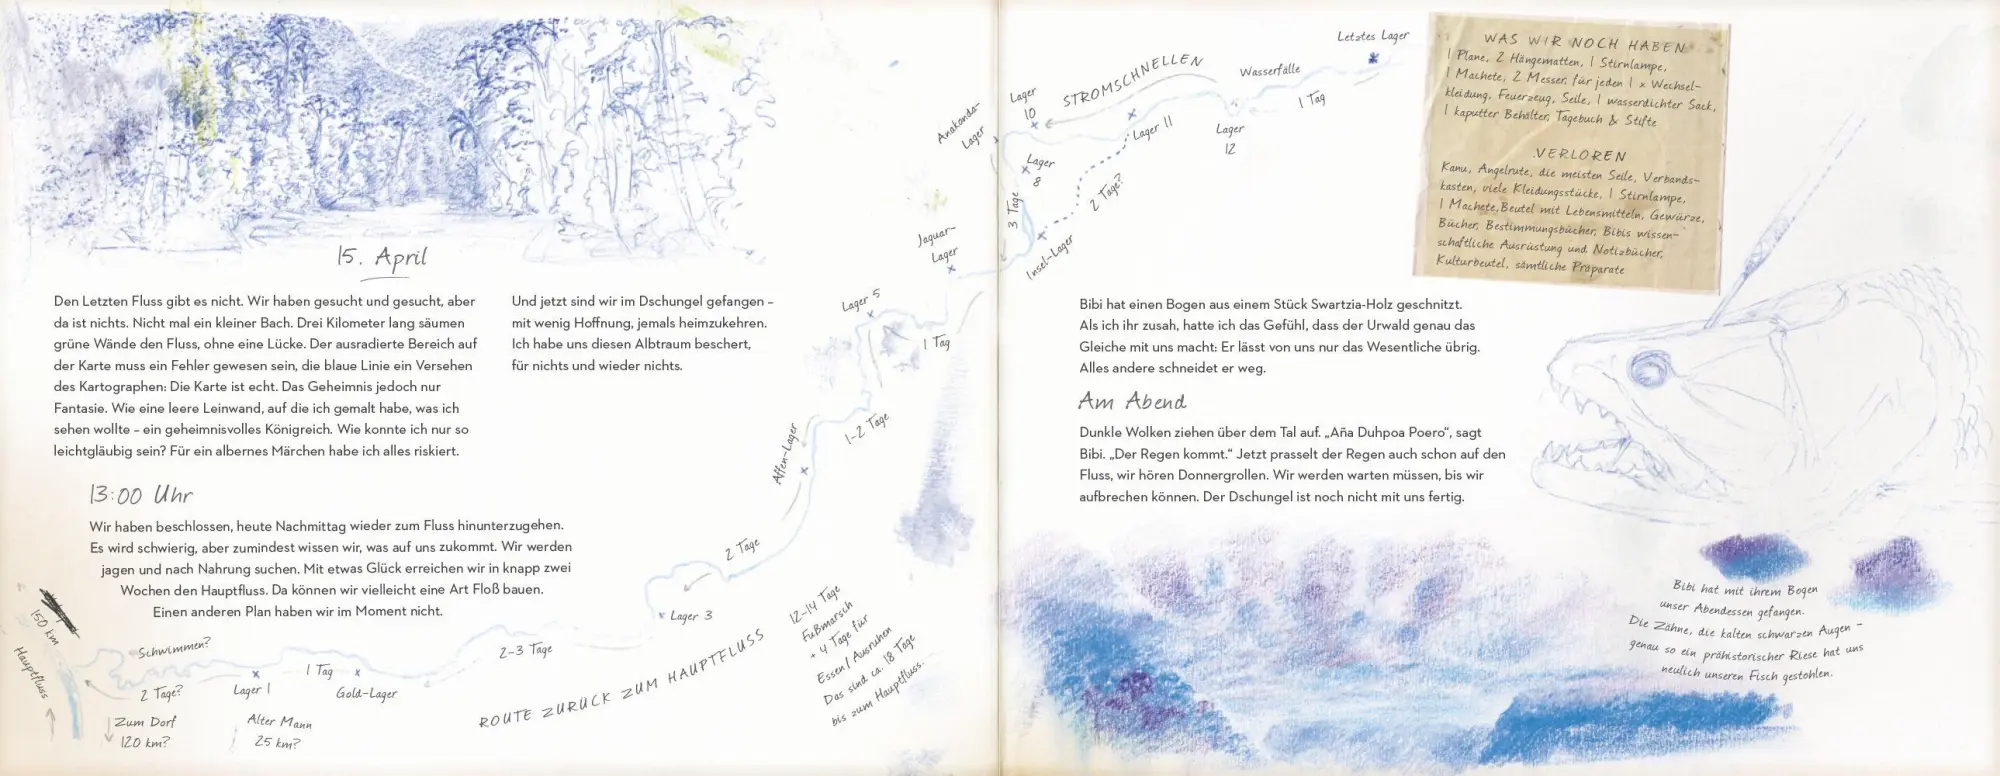 15. April
Den Letzten Fluss gibt es nicht. Wir haben gesucht und gesucht, aber
da ist nichts. Nicht mal ein kleiner Bach. Drei Kilometer lang säumen
grüne Wände den Fluss, ohne eine Lücke. Der ausradierte Bereich auf
der Karte muss ein Fehler gewesen sein, die blaue Linie ein Versehen
des Kartographen: Die Karte ist echt. Das Geheimnis jedoch nur
Fantasie. Wie eine leere Leinwand, auf die ich gemalt habe, was ich
sehen wollte – ein geheimnisvolles Königreich. Wie konnte ich nur so
leichtgläubig sein? Für ein albernes Märchen habe ich alles riskiert.
Und jetzt sind wir im Dschungel gefangen –
mit wenig Hoffnung, jemals heimzukehren.
Ich habe uns diesen Albtraum beschert,
für nichts und wieder nichts.
13:00 Uhr
Wir haben beschlossen, heute Nachmittag wieder zum Fluss hinunterzugehen.
Es wird schwierig, aber zumindest wissen wir, was auf uns zukommt. Wir werden
jagen und nach Nahrung suchen. Mit etwas Glück erreichen wir in knapp zwei
Wochen den Hauptfluss. Da können wir vielleicht eine Art Floß bauen.
Einen anderen Plan haben wir im Moment nicht.
150 km
Hauptfluss
Schwimmen?
2 Tage?
Zum Dorf
120 km?
Lager 1
Alter Mann
25 km?
1 Tag
Gold-Lager
2–3 Tage
Lager 3
ROUTE ZURÜCK ZUM HAUPTFLUSS
2 Tage
12–14 Tage
Fußmarsch
+ 4 Tage für
Essen / Ausruhen
Das sind ca. 18 Tage
bis zum Hauptfluss.
Affen-Lager
1–2 Tage
Lager 5
1 Tag
Jaguar-
Lager
Insel-Lager
3 Tage
2 Tage?
Lager
8
Anakonda-
Lager
Lager
10
STROMSCHNELLEN
Lager 11
Lager
12
Wasserfälle
1 Tag
Letztes Lager
WAS WIR NOCH HABEN
1 Plane, 2 Hängematten, 1 Stirnlampe,
1 Machete, 2 Messer, für jeden 1 x Wechsel-
kleidung, Feuerzeug, Seile, 1 wasserdichter Sack,
1 kaputter Behälter, Tagebuch & Stifte
VERLOREN
Kanu, Angelrute, die meisten Seile, Verbands-
kasten, viele Kleidungsstücke, 1 Stirnlampe,
1 Machete, Beutel mit Lebensmitteln, Gewürze,
Bücher, Bestimmungsbücher, Bibis wissen-
schaftliche Ausrüstung und Notizbücher,
Kulturbeutel, sämtliche Präparate
Bibi hat einen Bogen aus einem Stück Swartzia-Holz geschnitzt.
Als ich ihr zusah, hatte ich das Gefühl, dass der Urwald genau das
Gleiche mit uns macht: Er lässt von uns nur das Wesentliche übrig.
Alles andere schneidet er weg.
Am Abend
Dunkle Wolken ziehen über dem Tal auf. „Aña Duhpoa Poero“, sagt
Bibi. „Der Regen kommt.“ Jetzt prasselt der Regen auch schon auf den
Fluss, wir hören Donnergrollen. Wir werden warten müssen, bis wir
aufbrechen können. Der Dschungel ist noch nicht mit uns fertig.
Bibi hat mit ihrem Bogen
unser Abendessen gefangen.
Die Zähne, die kalten schwarzen Augen –
genau so ein prähistorischer Riese hat uns
neulich unseren Fisch gestohlen.